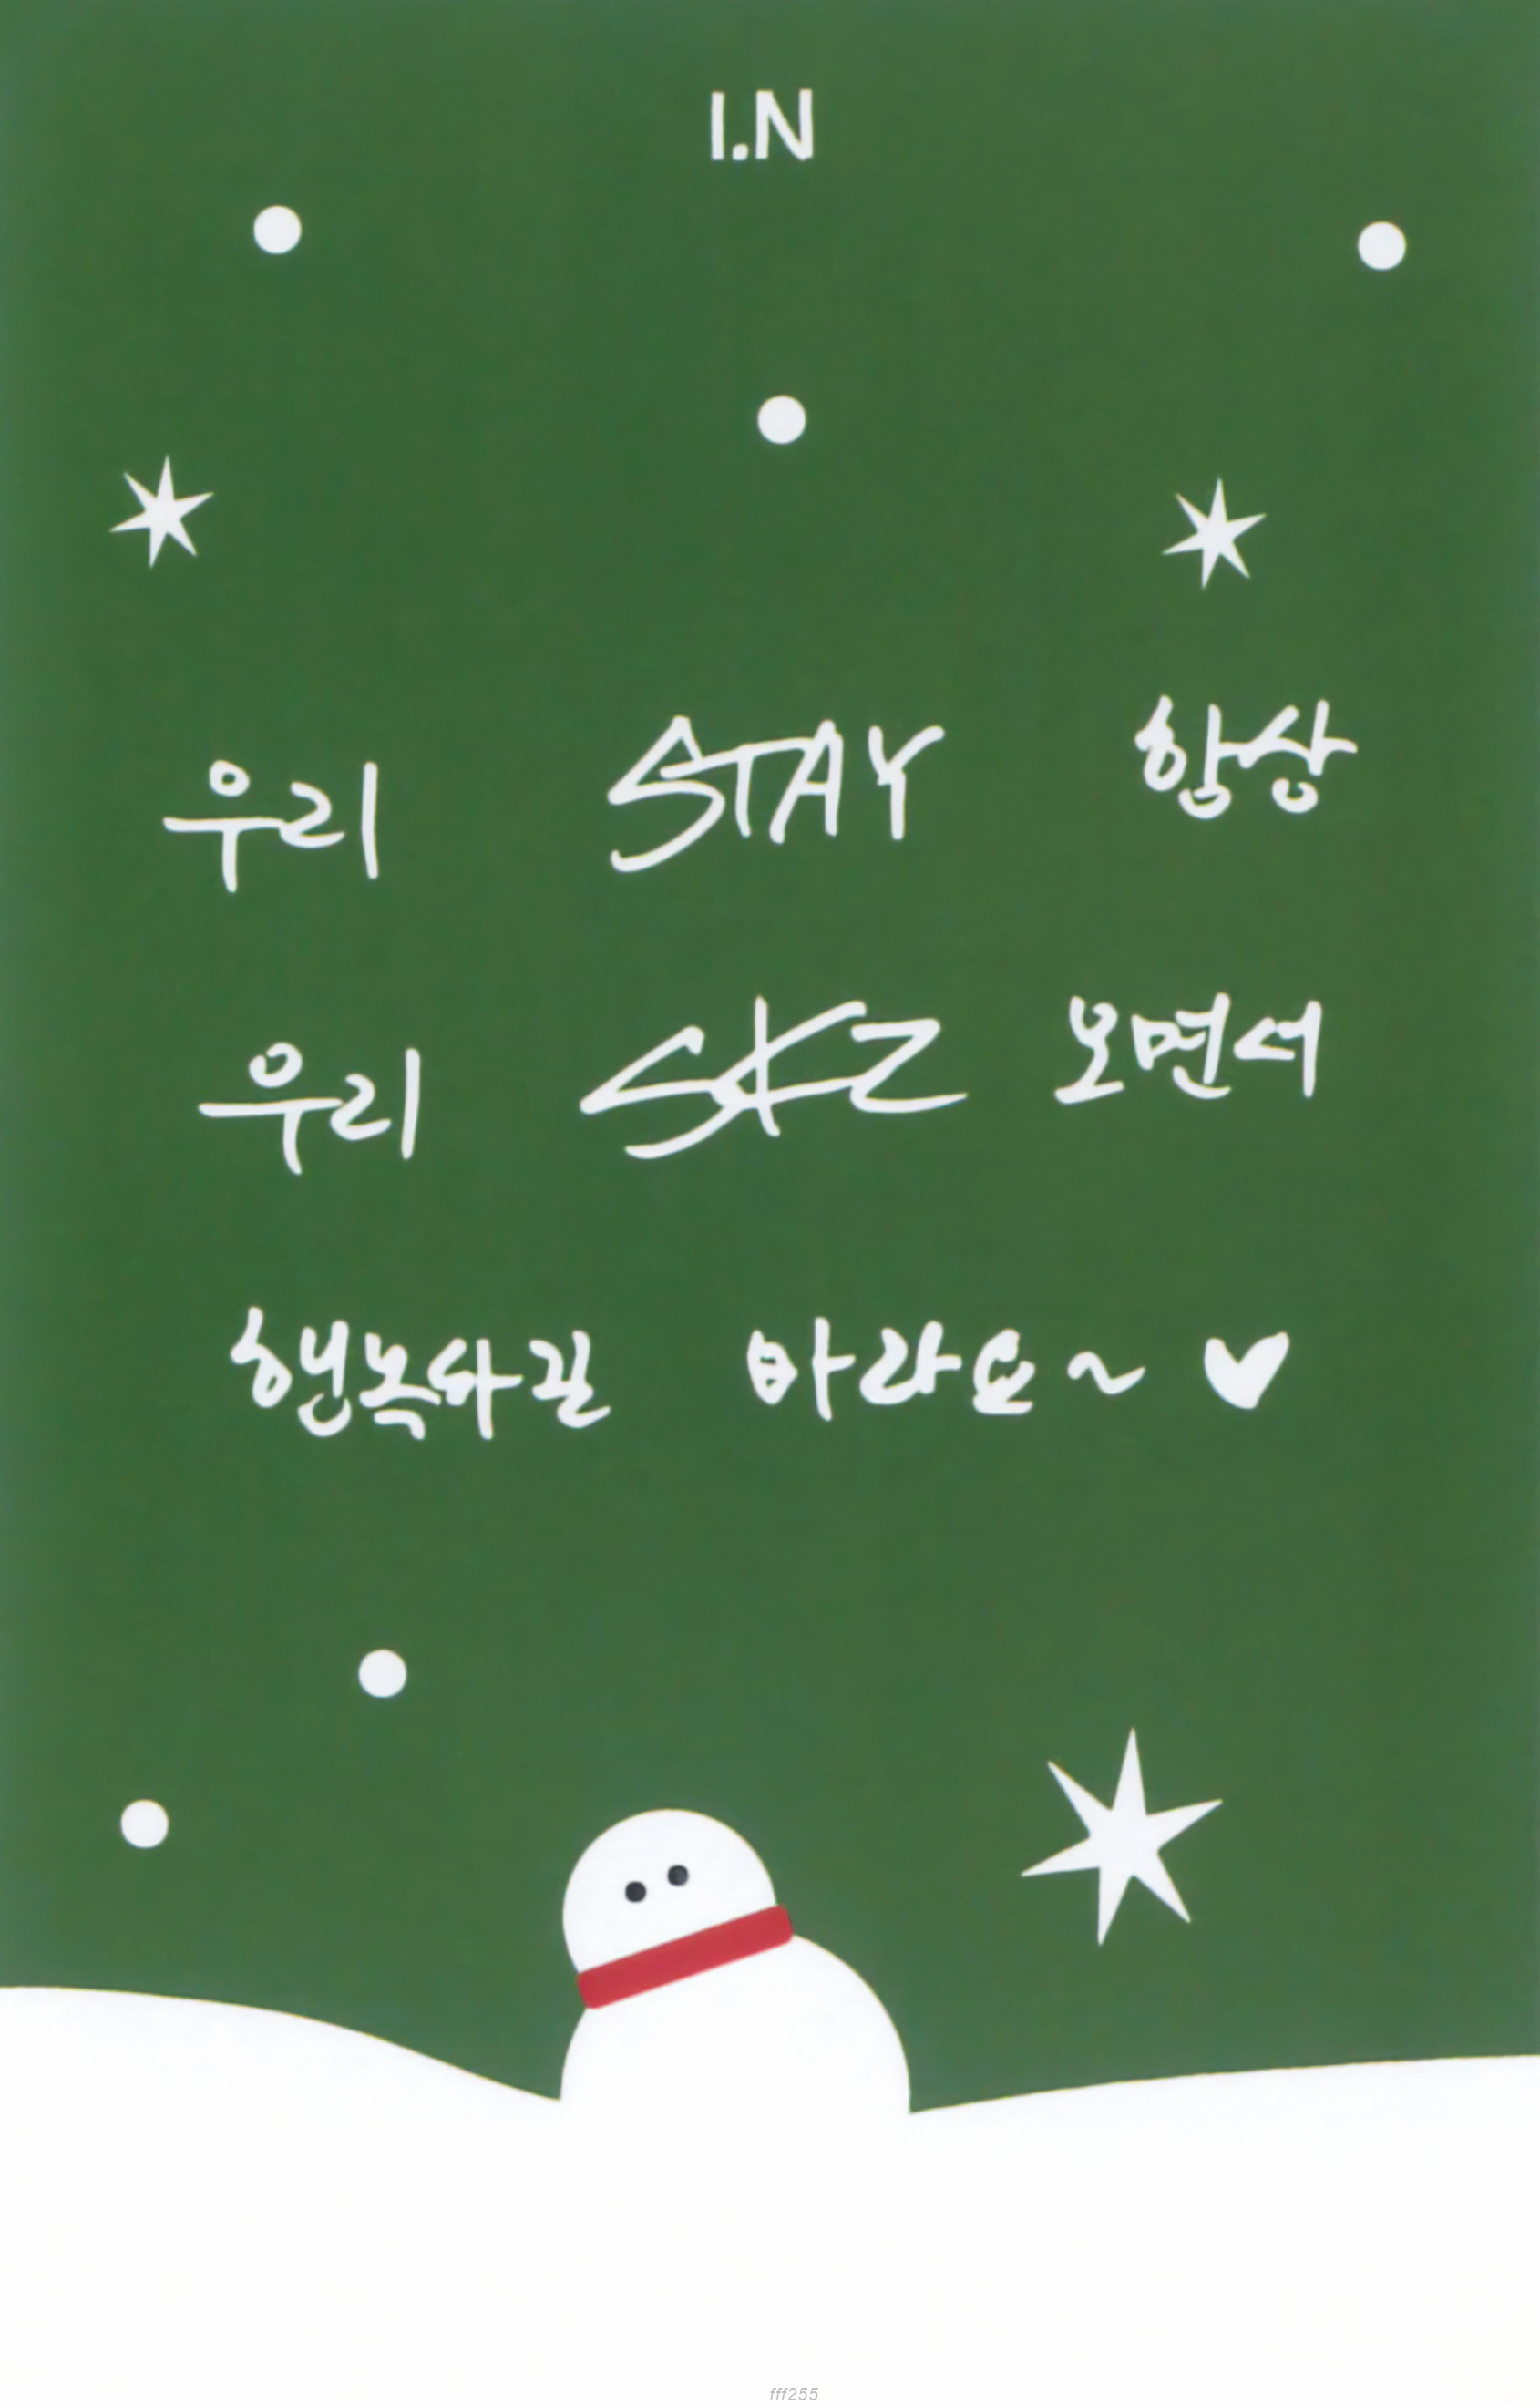 I.N
우리 STAY 항상
우리 SKZ 보면서
행복하길 바라요~ ♥
fff255